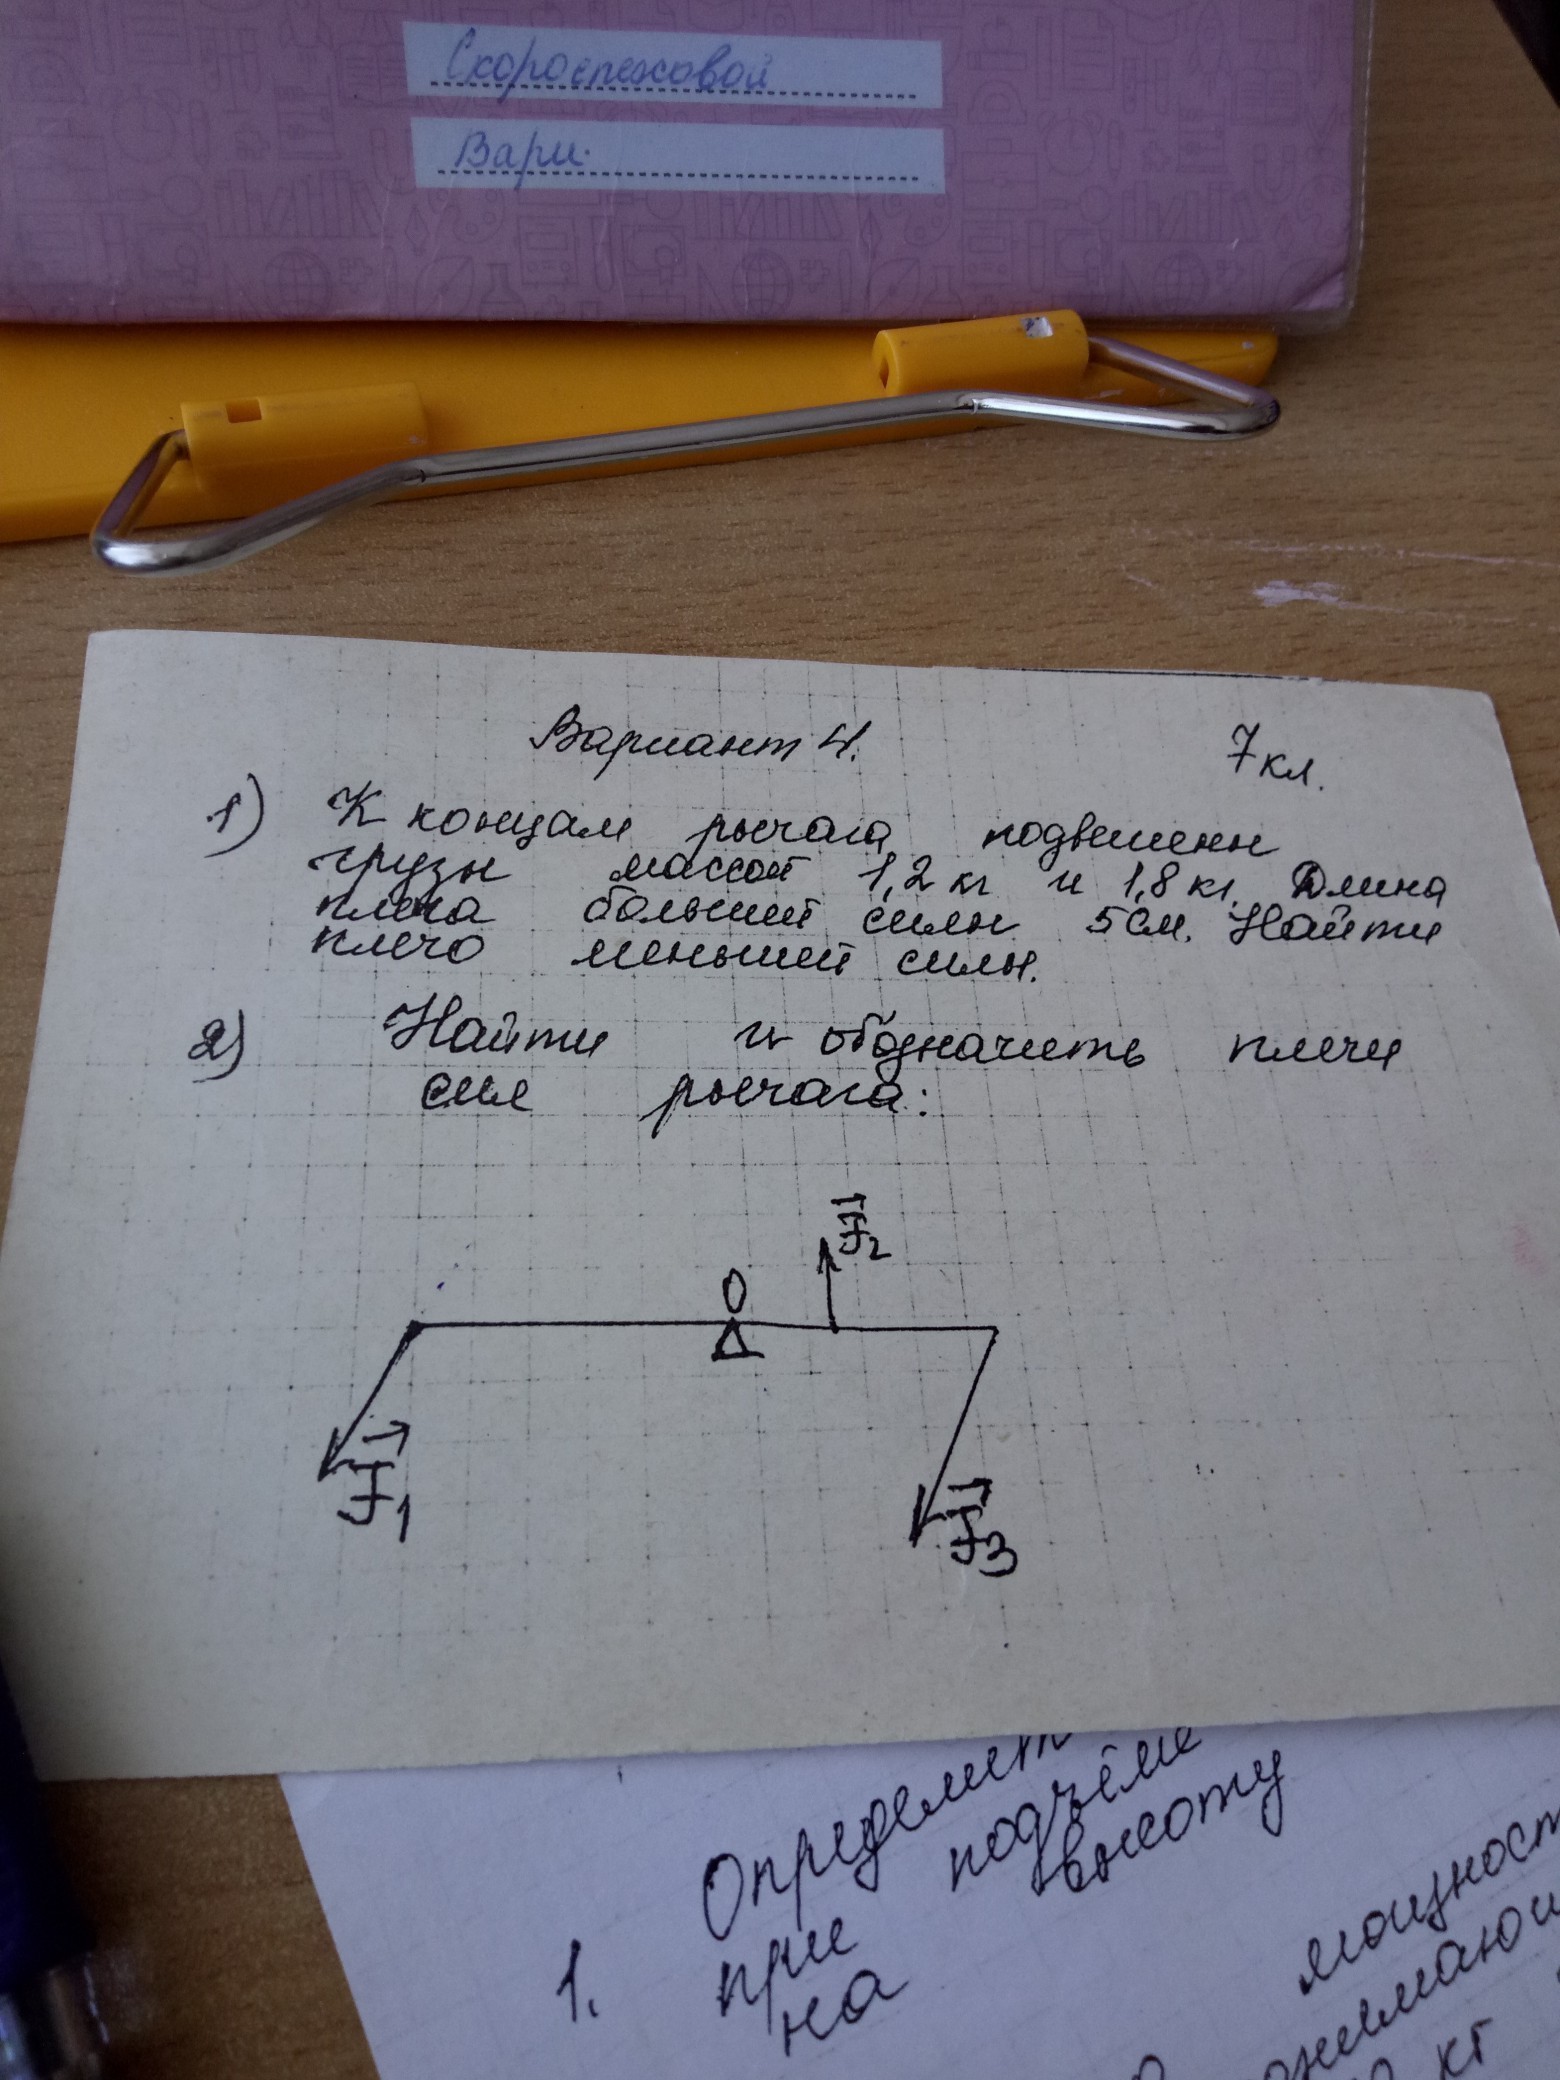 Скороспеховой
Вари.
Вариант 4.
7 кл.
1) К концам рычага подвешены
грузы массой 1,2 кг и 1,8 кг. Длина
плеча большей силы 5 см. Найти
плечо меньшей силы.
2) Найти и обозначить плечи
сил рычага:
F₂
O
F₁
F₃
Определит
при подъёме
на высоту
1.
мощност
кг